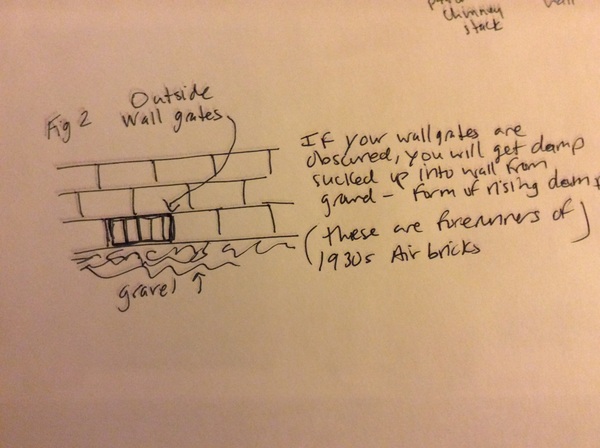 chimney
stack
Fig 2
Outside
wall grates
If your wall grates are
obscured, you will get damp
sucked up into wall from
ground - form of rising damp
(these are forerunners of
1930s Air bricks)
gravel